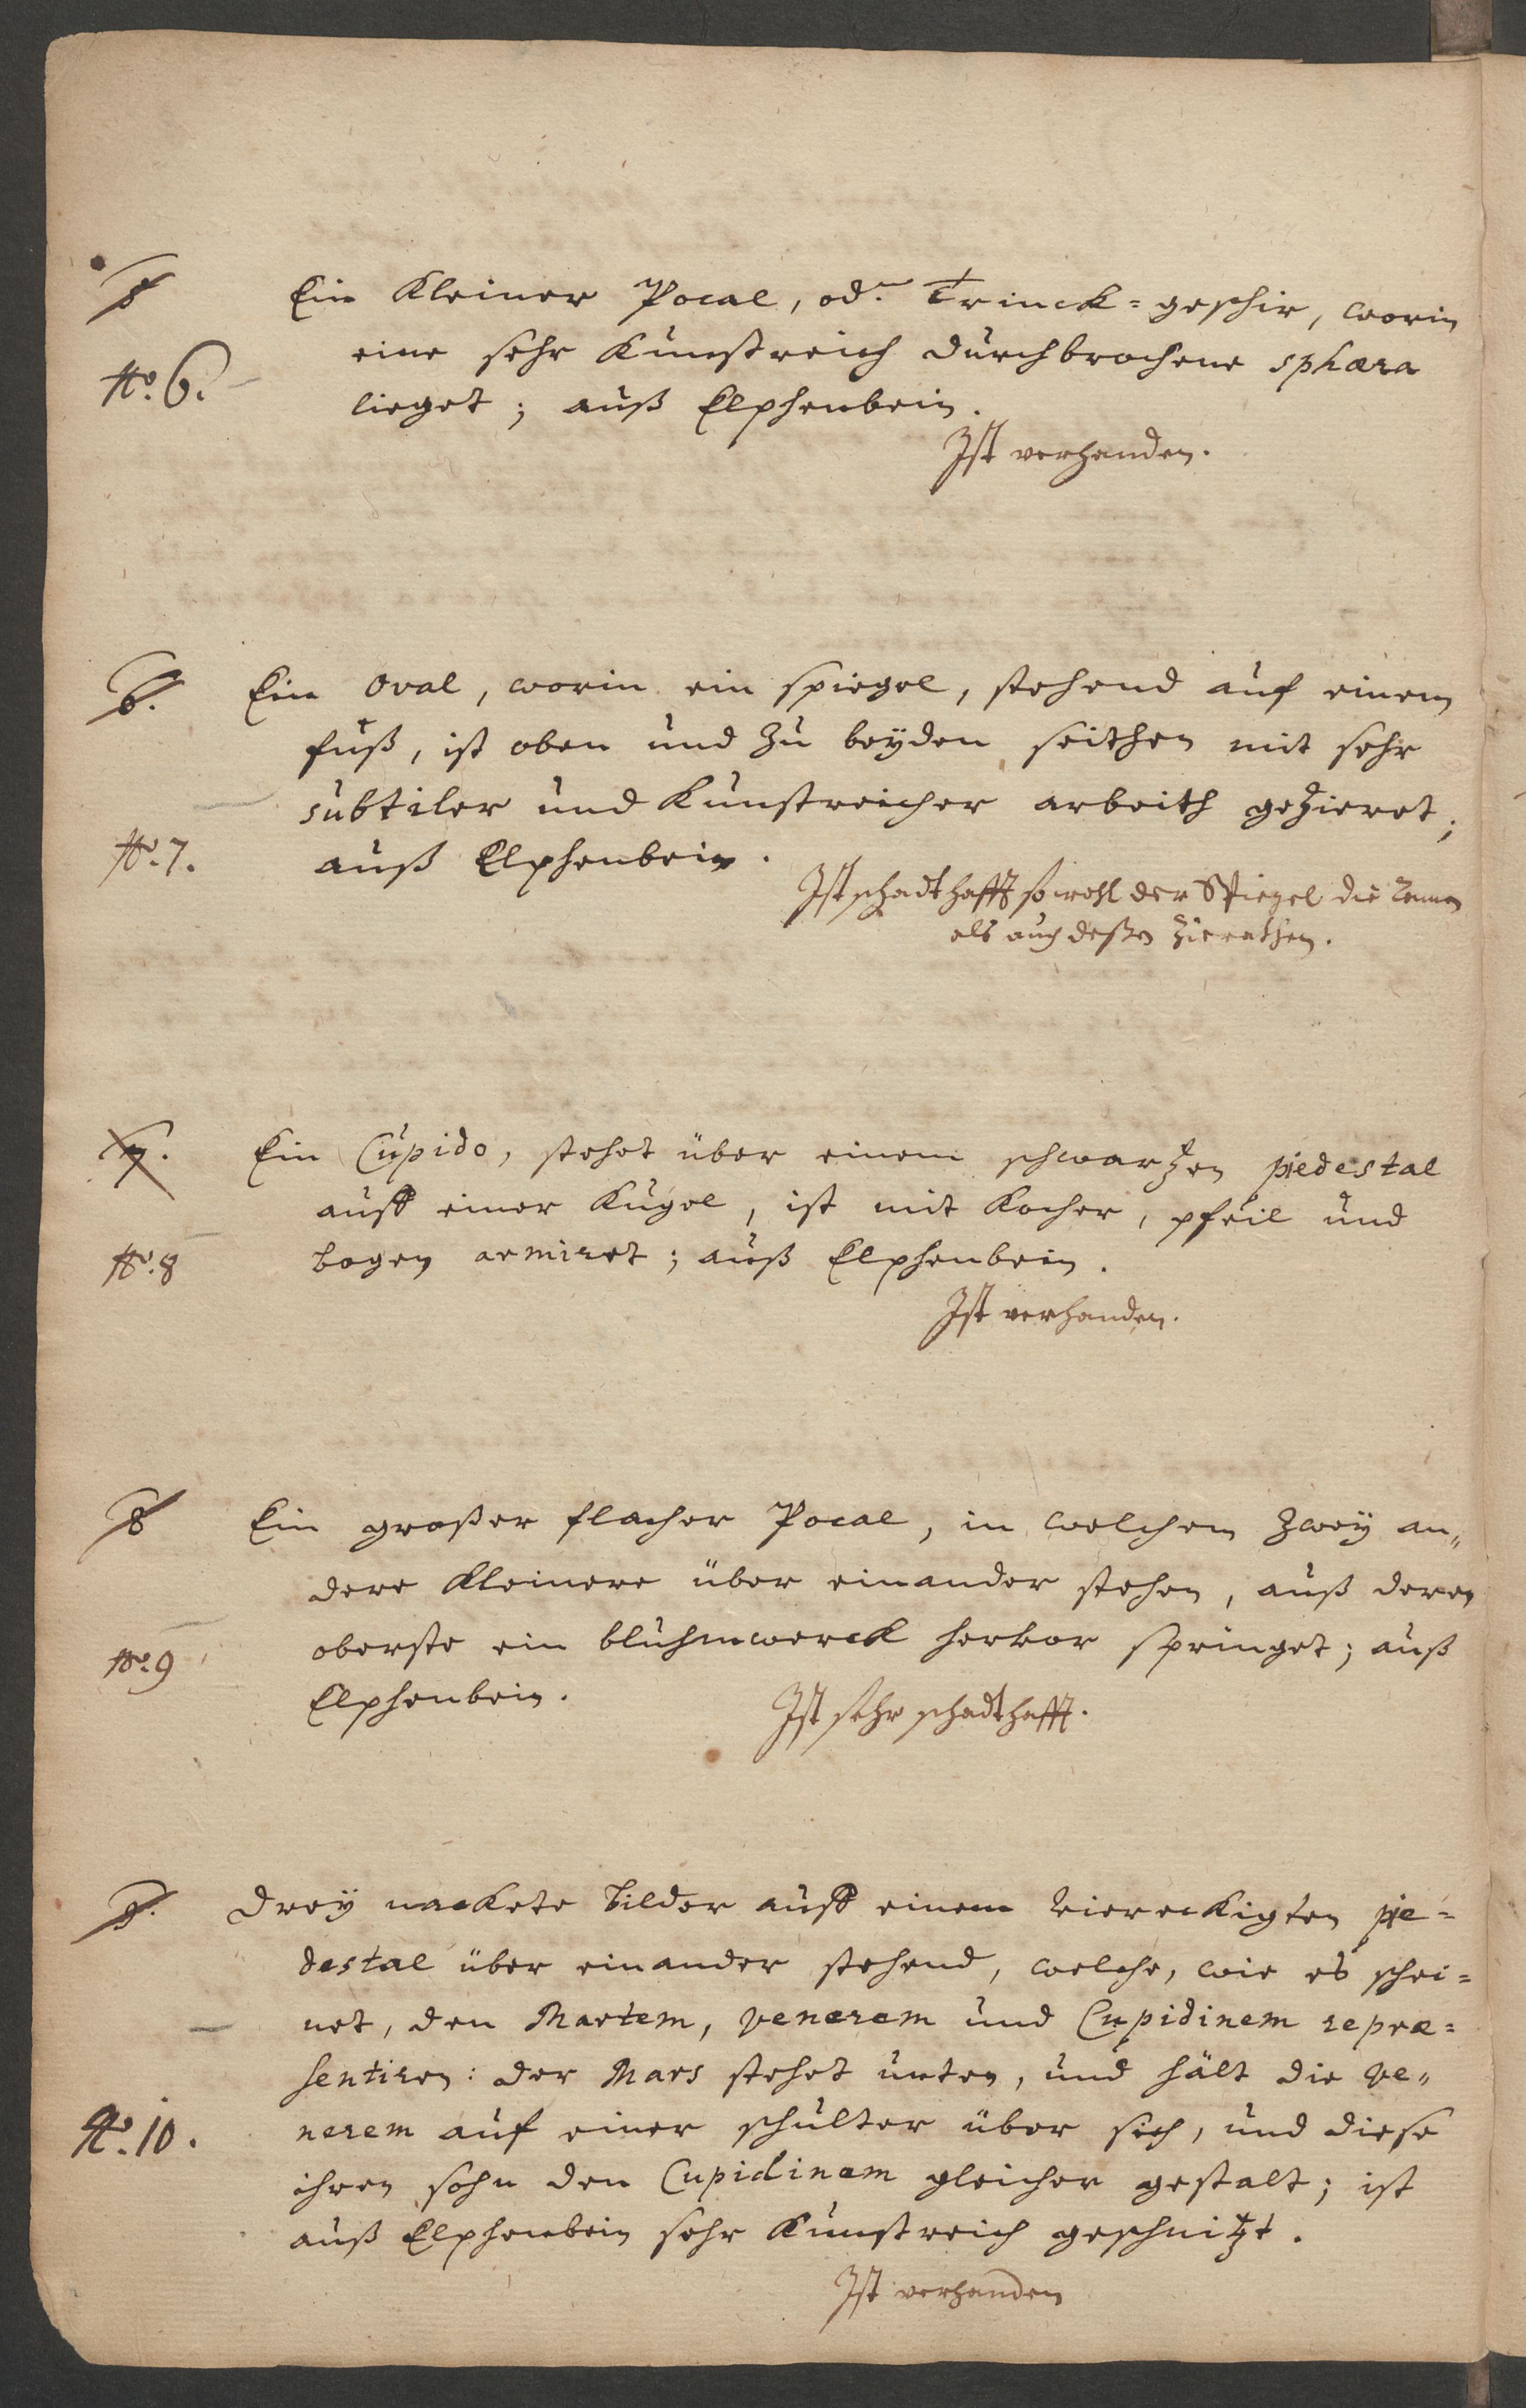 5
No. 6.
Ein Kleiner Pocal, od. Trinck=geschir, worin
eine sehr Kunstreich durchbrochene sphæra
lieget; auß Elphenbein.
Ist verhanden.
6.
No. 7.
Ein Oval, worin ein spiegel, stehend auf einem
fuß, ist oben und zu beyden seithen mit sehr
subtiler und Kunstreicher arbeith gezieret;
auß Elphenbein.
Ist schadthafft so wohl der Spiegel die
als auch deßen Zierathen.
7.
No. 8
Ein Cupido, stehet über einem schwartzen piedestal
auff einer Kugel, ist mit Kocher, pfeil und
bogen armiret; auß Elphenbein.
Ist verhanden.
8
No. 9
Ein großer flacher Pocal, in welchem zwey an„
dere Kleinere über einander stehen, auß deren
oberste ein bluhmwerck hervor springet; auß
Elphenbein.
Ist sehr schadthafft.
9.
No. 10.
Drey nackete bilder auff einem viereckigten pie=
destal über einander stehend, welche, wie es schei=
net, den Martem, Venerem und Cupidinem repræ=
sentiren: der Mars stehet unten, und hält die Ve„
nerem auf einer schulter über sich, und diese
ihren sohn den Cupidinem gleicher gestalt; ist
auß Elphenbein sehr Kunstreich geschnitzt.
Ist verhanden